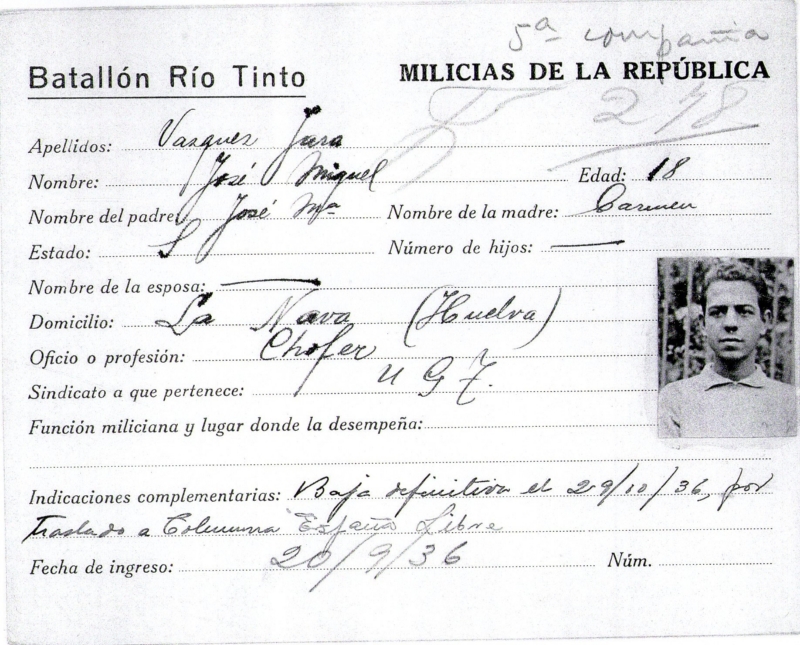 5ª compañia
Batallón Río Tinto
MILICIAS DE LA REPÚBLICA
278
Apellidos: Vazquez Jara
Nombre: José Miguel Edad: 18
Nombre del padre: José Mª Nombre de la madre: Carmen
Estado: S Número de hijos: —
Nombre de la esposa: —
Domicilio: La Nava (Huelva)
Oficio o profesión: Chofer
Sindicato a que pertenece: U G T.
Función miliciana y lugar donde la desempeña:
Indicaciones complementarias: Baja definitiva el 29/10/36, por
traslado a Columna España Libre
Fecha de ingreso: 20/9/36 Núm.